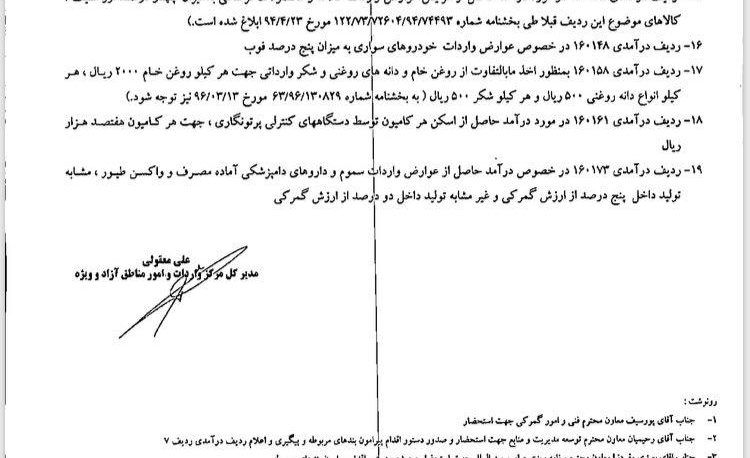 کالاهای موضوع این ردیف قبلا طی بخشنامه شماره ۱۲۲/۷۳/۷۲۶۰۴/۹۴/۷۴۴۹۳ مورخ ۹۴/۴/۲۳ ابلاغ شده است.)
۱۶- ردیف درآمدی ۱۶۰۱۴۸ در خصوص عوارض واردات خودروهای سواری به میزان پنج درصد فوب
۱۷- ردیف درآمدی ۱۶۰۱۵۸ بمنظور اخذ مابالتفاوت از روغن خام و دانه های روغنی و شکر وارداتی جهت هر کیلو روغن خام ۲۰۰۰ ریال ، هر
کیلو انواع دانه روغنی ۵۰۰ ریال و هر کیلو شکر ۵۰۰ ریال ( به بخشنامه شماره ۶۳/۹۶/۱۳۰۸۲۹ مورخ ۹۶/۰۳/۱۳ نیز توجه شود.)
۱۸- ردیف درآمدی ۱۶۰۱۶۱ در مورد درآمد حاصل از اسکن هر کامیون توسط دستگاههای کنترلی پرتونگاری ، جهت هر کامیون هفتصد هزار
ریال
۱۹- ردیف درآمدی ۱۶۰۱۷۳ در خصوص درآمد حاصل از عوارض واردات سموم و داروهای دامپزشکی آماده مصرف و واکسن طیور ، مشابه
تولید داخل پنج درصد از ارزش گمرکی و غیر مشابه تولید داخل دو درصد از ارزش گمرکی
علی معقولی
مدیر کل مرکز واردات و امور مناطق آزاد و ویژه
رونرشت :
۱- جناب آقای پورسیف معاون محترم فنی و امور گمرکی جهت استحضار
۲- جناب آقای رحیمیان معاون محترم توسعه مدیریت و منابع جهت استحضار و صدور دستور اقدام پیرامون بندهای مربوطه و پیگیری و اعلام ردیف درآمدی ردیف ۷